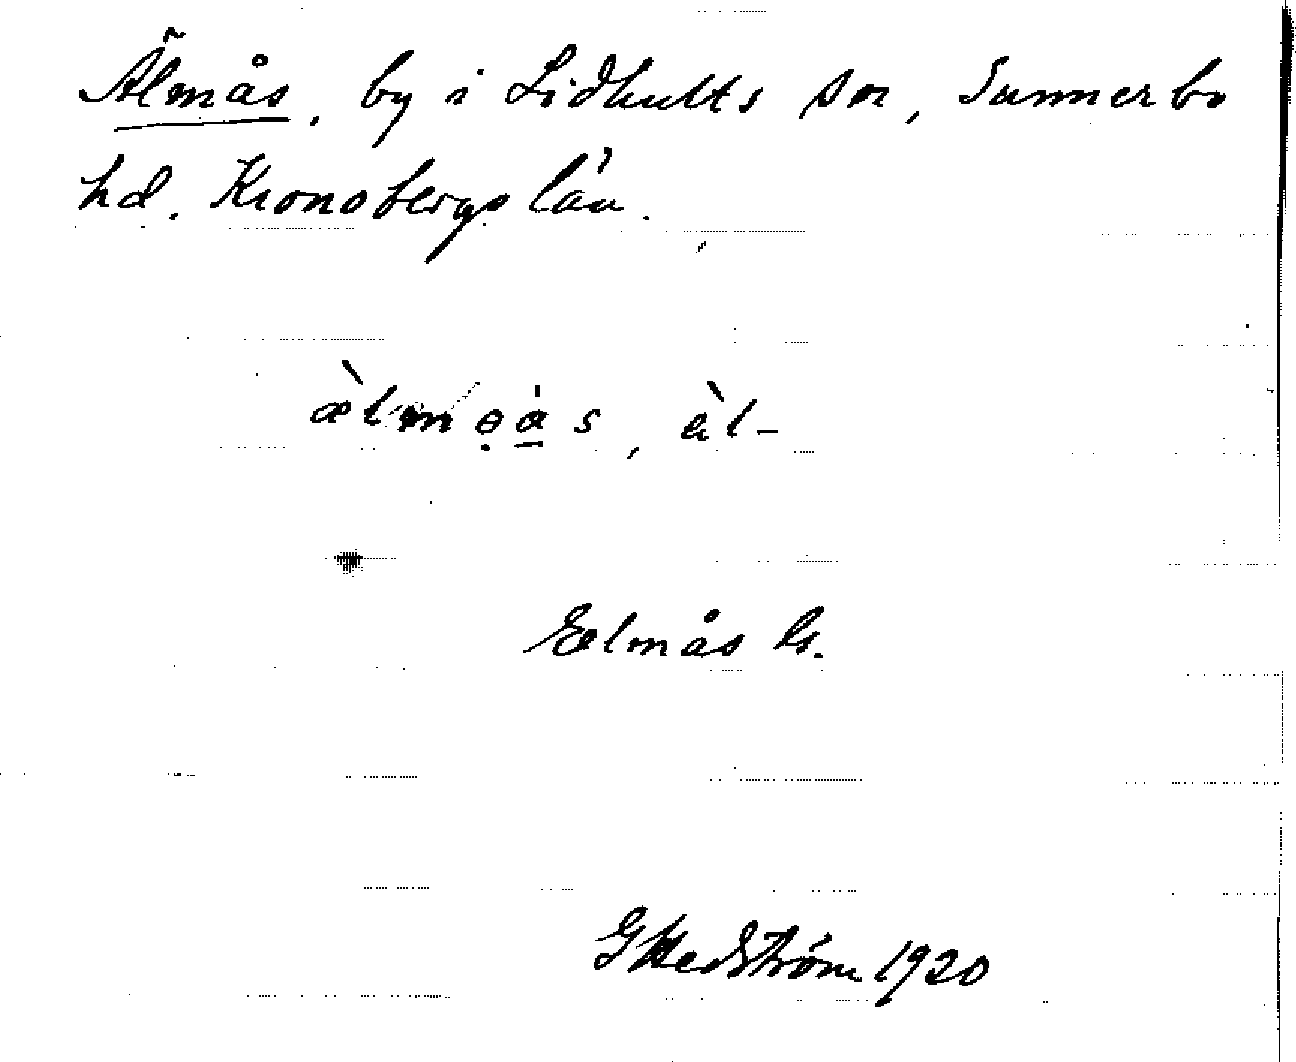 Älmås, by i Lidhults sn, Sunnerbo
hd. Kronobergs län.
Elmås
GHedström 1920